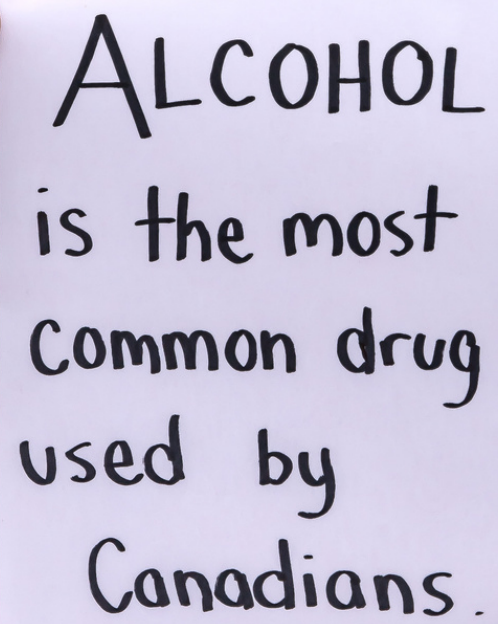 ALCOHOL
is the most
common drug
used by
Canadians.